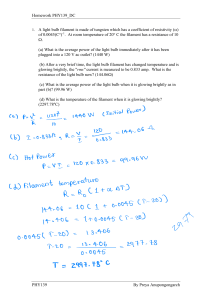 Homework PHY139_DC
1. A light bulb filament is made of tungsten which has a coefficient of resistivity (α)
of 0.0045(C°)⁻¹. At room temperature of 20° C the filament has a resistance of 10
Ω.
(a) What is the average power of the light bulb immediately after it has been
plugged into a 120 V ac outlet? (1440 W)
(b) After a very brief time, the light bulb filament has changed temperature and is
glowing brightly, the "rms" current is measured to be 0.833 amp. What is the
resistance of the light bulb now? (144.06Ω)
(c) What is the average power of the light bulb when it is glowing brightly as in
part (b)? (99.96 W)
(d) What is the temperature of the filament when it is glowing brightly?
(a) P = V²/R = 120²/10 = 1440 W (Initial Power)
(b) I = 0.833A, R = V/I = 120/0.833 = 144.06 Ω
(c) Hot Power
P = VI = 120 x 0.833 = 99.96 W
(d) Filament temperature
R = R₀ (1 + α ΔT)
144.06 = 10 (1 + 0.0045 (T-20))
14.406 = 1 + 0.0045 (T-20)
0.0045 (T-20) = 13.406
T-20 = 13.406/0.0045 = 2979.78
PHY139
By Preya Anupongongarch